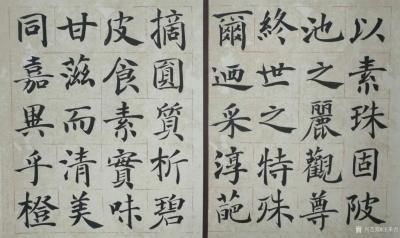 以素珠固陂
池之麗觀尊
終世之特殊
爾迺采淳葩
摘圓質析碧
皮食素實味
甘滋而清美
同嘉異乎橙